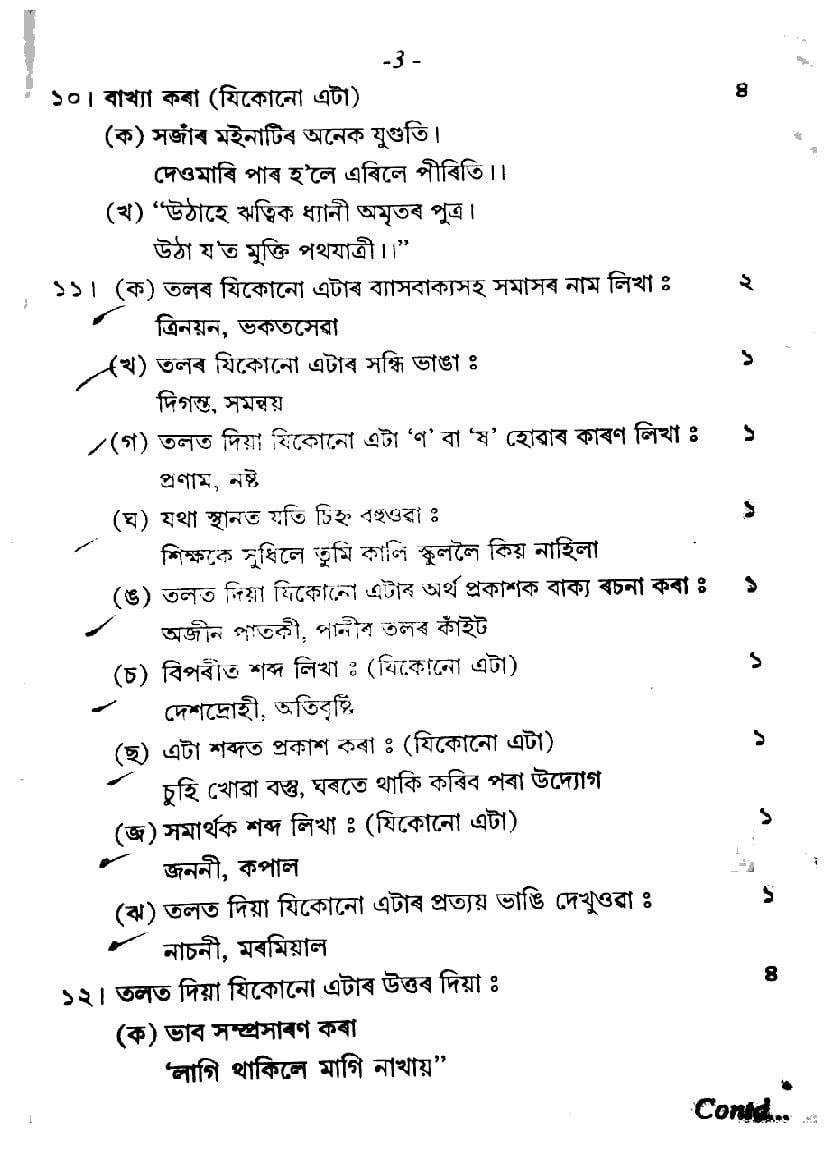 -3-
১০। বাখ্যা কৰা (যিকোনো এটা) ৪
(ক) সজাঁৰ মইনাটিৰ অনেক যুগুতি।
দেওমাৰি পাৰ হ'লে এৰিলে পীৰিতি।।
(খ) “উঠাহে ঋত্বিক ধ্যানী অমৃতৰ পুত্ৰ।
উঠা য'ত মুক্তি পথযাত্ৰী।।”
১১। (ক) তলৰ যিকোনো এটাৰ ব্যাসবাক্যসহ সমাসৰ নাম লিখা ঃ ২
ত্ৰিনয়ন, ভকতসেৱা
(খ) তলৰ যিকোনো এটাৰ সন্ধি ভাঙা ঃ ১
দিগন্ত, সমন্বয়
(গ) তলত দিয়া যিকোনো এটা ‘ণ’ বা ‘ষ’ হোৱাৰ কাৰণ লিখা ঃ ১
প্ৰণাম, নষ্ট
(ঘ) যথা স্থানত যতি চিহ্ন বহুওৱা ঃ ১
শিক্ষকে সুধিলে তুমি কালি স্কুললৈ কিয় নাহিলা
(ঙ) তলত দিয়া যিকোনো এটাৰ অৰ্থ প্ৰকাশক বাক্য ৰচনা কৰা ঃ ১
অজীন পাতকী, পানীৰ তলৰ কাঁইট
(চ) বিপৰীত শব্দ লিখা ঃ (যিকোনো এটা) ১
দেশদ্ৰোহী, অতিবৃষ্টি
(ছ) এটা শব্দত প্ৰকাশ কৰা ঃ (যিকোনো এটা) ১
চুহি খোৱা বস্তু, ঘৰতে থাকি কৰিব পৰা উদ্যোগ
(জ) সমাৰ্থক শব্দ লিখা ঃ (যিকোনো এটা) ১
জননী, কপাল
(ঝ) তলত দিয়া যিকোনো এটাৰ প্ৰত্যয় ভাঙি দেখুওৱা ঃ ১
নাচনী, মৰমিয়াল
১২। তলত দিয়া যিকোনো এটাৰ উত্তৰ দিয়া ঃ ৪
(ক) ভাব সম্প্ৰসাৰণ কৰা
‘লাগি থাকিলে মাগি নাখায়”
Contd...